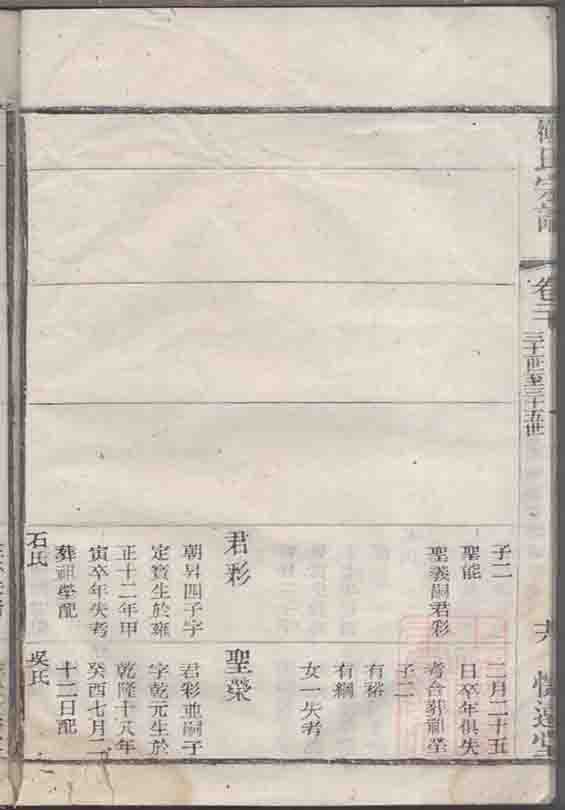 氏宗譜
卷
世至三十五世
子二
聖能
聖義嗣君彩
君彩
朝昇四子字
定生於雍
正十二年甲
寅卒年失考
葬祖塋配
石氏
二月二十五
日卒年俱失
考合葬祖塋
子二
有裕
有綱
女一失考
聖榮
君彩並嗣子
字乾元生於
乾隆十八年
癸酉七月二
十二日配
吳氏